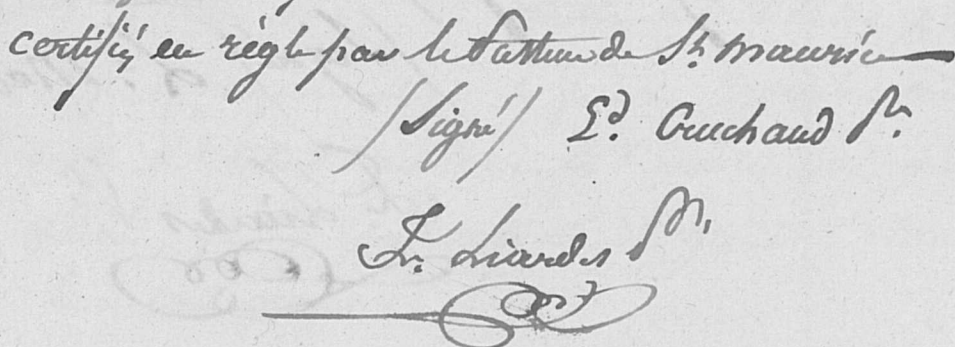 certifiés en règle par le Pasteur de St. Maurice
/Signé/ Ed. Cruchaud Pr.
Fr. Liardes Pr.